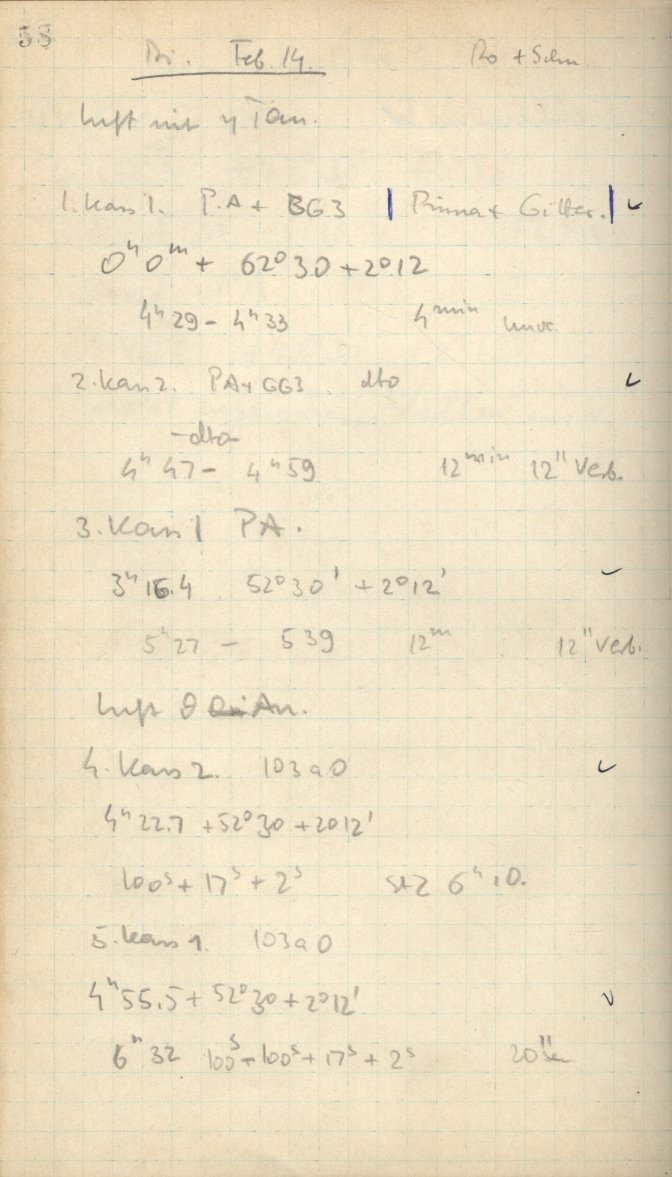 58
Di. Feb. 14. Ro + Schn
Luft mit η Tau.
1. Kass 1. P.A + GG3 | Prisma + Gitter. |
0ʰ 0ᵐ + 62° 30 + 2° 12
4ʰ 29 - 4ʰ 33 4 min
2. Kass 2. PA + GG3 dto
-dto-
4ʰ 47 - 4ʰ 59 12 min 12" Verb.
3. Kass 1 PA.
3ʰ 16.4 52° 30' + 2° 12'
5ʰ 27 - 5 39 12ᵐ 12" Verb.
Luft θ An.
4. Kass 2. 103aO
4ʰ 22.7 + 52° 30 + 2° 12'
100ˢ + 17ˢ + 2ˢ StZ 6ʰ 10.
5. Kass 1. 103aO
4ʰ 55.5 + 52° 30 + 2° 12'
6ʰ 32 100ˢ + 100ˢ + 17ˢ + 2ˢ 20"